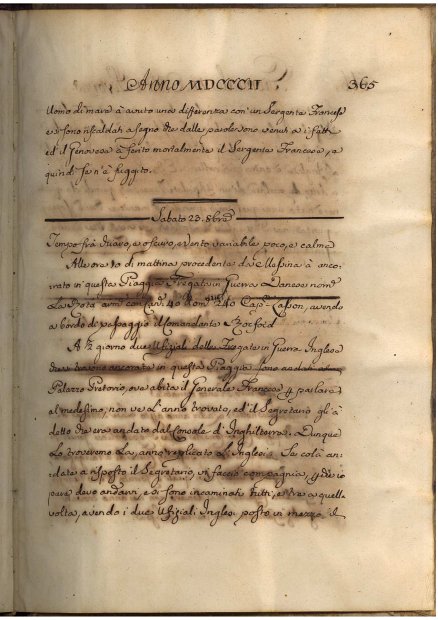 Anno MDCCCII 365
Uomo di mare à avuto una differenza con un Sergente Francese
e si sono riscaldati a segno che dalle parole sono venuti a i fatti
ed il Genovese à ferito mortalmente il Sergente Francese, e
quindi se n'è fuggito.
Sabato 23. 8bre
Tempo frà chiaro, e oscuro, e Vento variabile poco, e calme
Alle ore 10 di mattina procedente da Messina à anco-
rato in questa Piaggia Fregata in Guerra Danese nom.
La Rota arm. con Cann. 40 Uom. 240 Cap.
a bordo di passaggio il Comandante
A ½ giorno due Ufiziali delle Fregate in Guerra Inglese
che si trovano ancorate in questa Piaggia sono andati
Palazzo Pretorio, ove abita il Generale Francese p parlare
al medesimo, non ve l'anno trovato, ed il Segretario gl'à
detto ch'era andato dal Console d'Inghilterra. Dunque
Lo troveremo La, anno replicato gl'Inglesi. Se colà an-
date à risposto il Segretario, vi faccio compagnia, che io
pure devo andarvi, e si sono incaminati tutti, e tre a quella
volta, avendo i due Ufiziali Inglesi posto in mezzo il